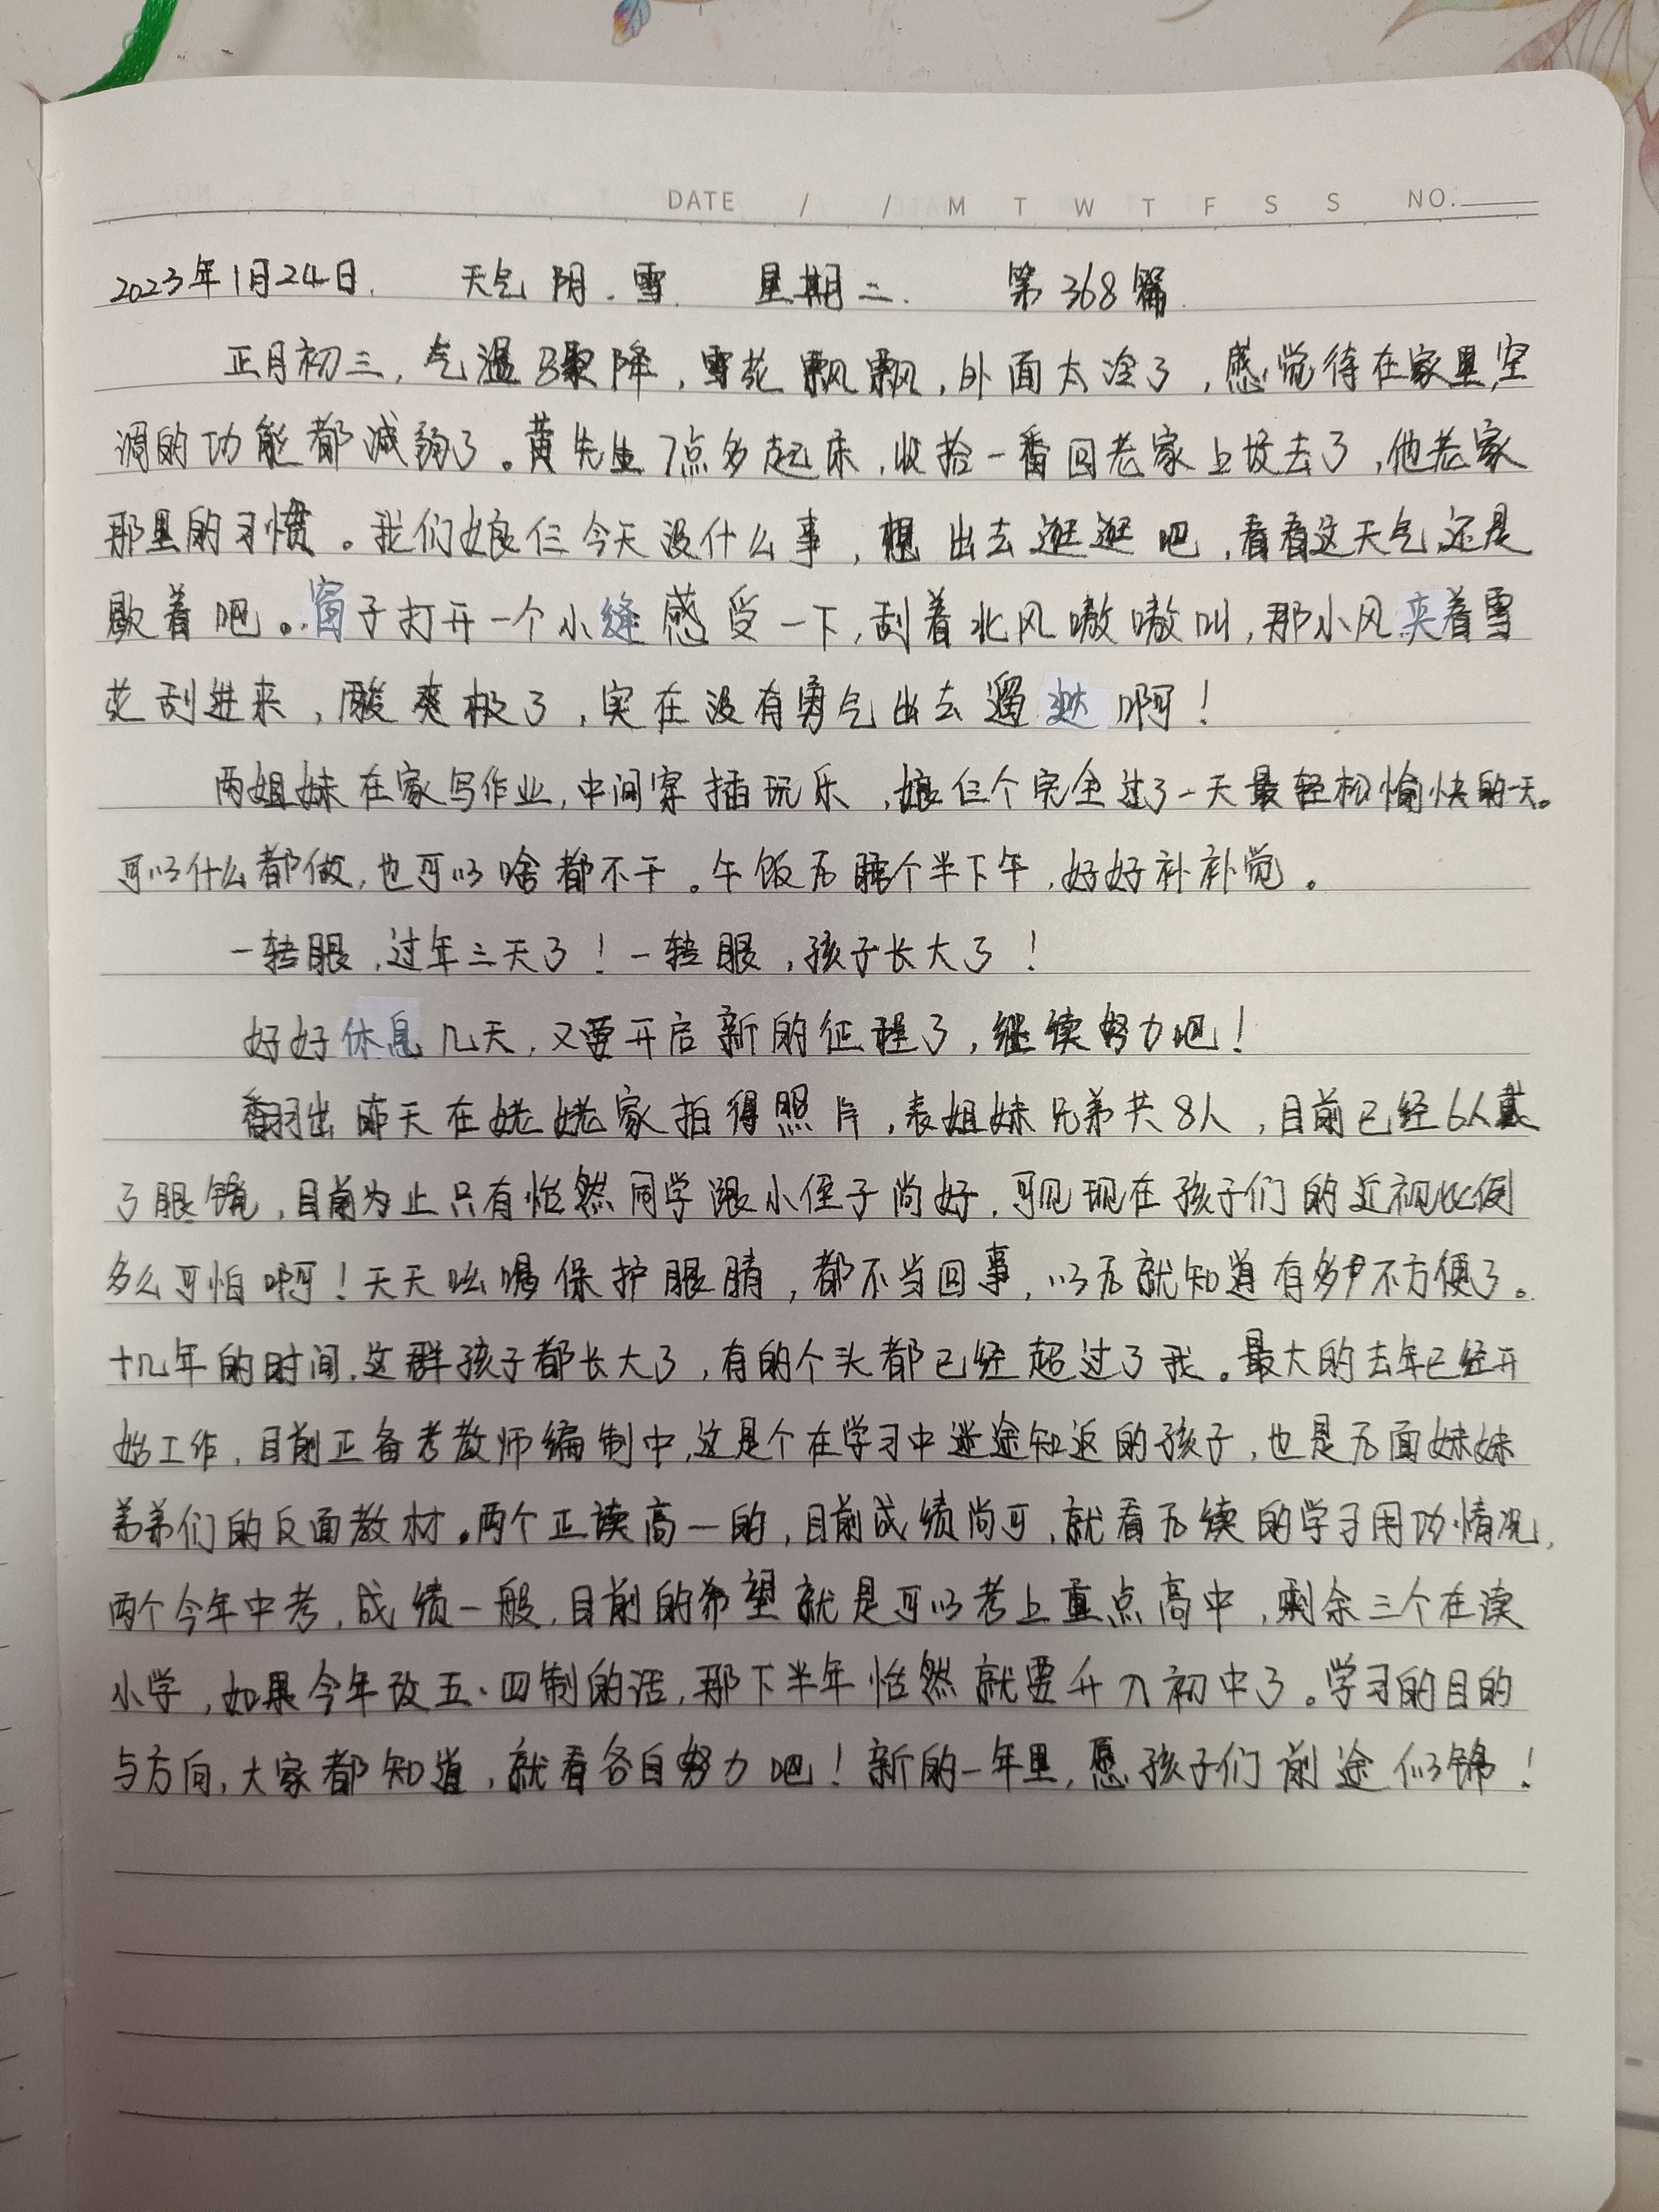 DATE / / M T W T F S S NO.
2023年1月24日. 天气 阴.雪. 星期二. 第368篇.
正月初三,气温骤降,雪花飘飘,外面太冷了,感觉待在家里,空
调的功能都减弱了。黄先生7点多起床,收拾一番回老家上坟去了,他老家
那里的习惯。我们娘仨今天没什么事,想出去逛逛吧,看看这天气还是
歇着吧。窗子打开一个小缝感受一下,刮着北风嗷嗷叫,那小风夹着雪
花刮进来,酸爽极了,实在没有勇气出去遛达啊!
两姐妹在家写作业,中间穿插玩乐,娘仨个完全过了一天最轻松愉快的一天。
可以什么都做,也可以啥都不干。午饭后睡个半下午,好好补补觉。
一转眼,过年三天了!一转眼,孩子长大了!
好好休息几天,又要开启新的征程了,继续努力吧!
翻出昨天在姥姥家拍得照片,表姐妹兄弟共8人,目前已经6人戴
了眼镜,目前为止只有怡然同学跟小侄子尚好,可见现在孩子们的近视比例
多么可怕啊!天天吆喝保护眼睛,都不当回事,以后就知道有多不方便了。
十几年的时间,这群孩子都长大了,有的个头都已经超过了我。最大的去年已经开
始工作,目前正备考教师编制中,这是个在学习中迷途知返的孩子,也是后面妹妹
弟弟们的反面教材。两个正读高一的,目前成绩尚可,就看后续的学子用功情况,
两个今年中考,成绩一般,目前的希望就是可以考上重点高中,剩余三个在读
小学,如果今年改五·四制的话,那下半年怡然就要升入初中了。学习的目的
与方向,大家都知道,就看各自努力吧!新的一年里,愿孩子们前途似锦!